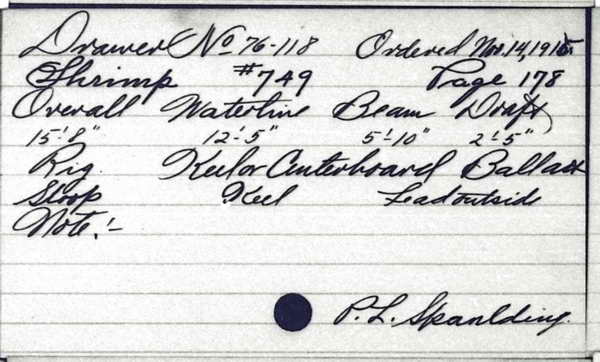 Drawer No 76-118 Ordered Nov. 14, 1915
Shrimp #749 Page 178
Overall Waterline Beam Draft
15'-8" 12'-5" 5'-10" 2'-5"
Rig. Keel or Centerboard Ballast
Sloop Keel Lead outside
Note:-
P. L. Spaulding.